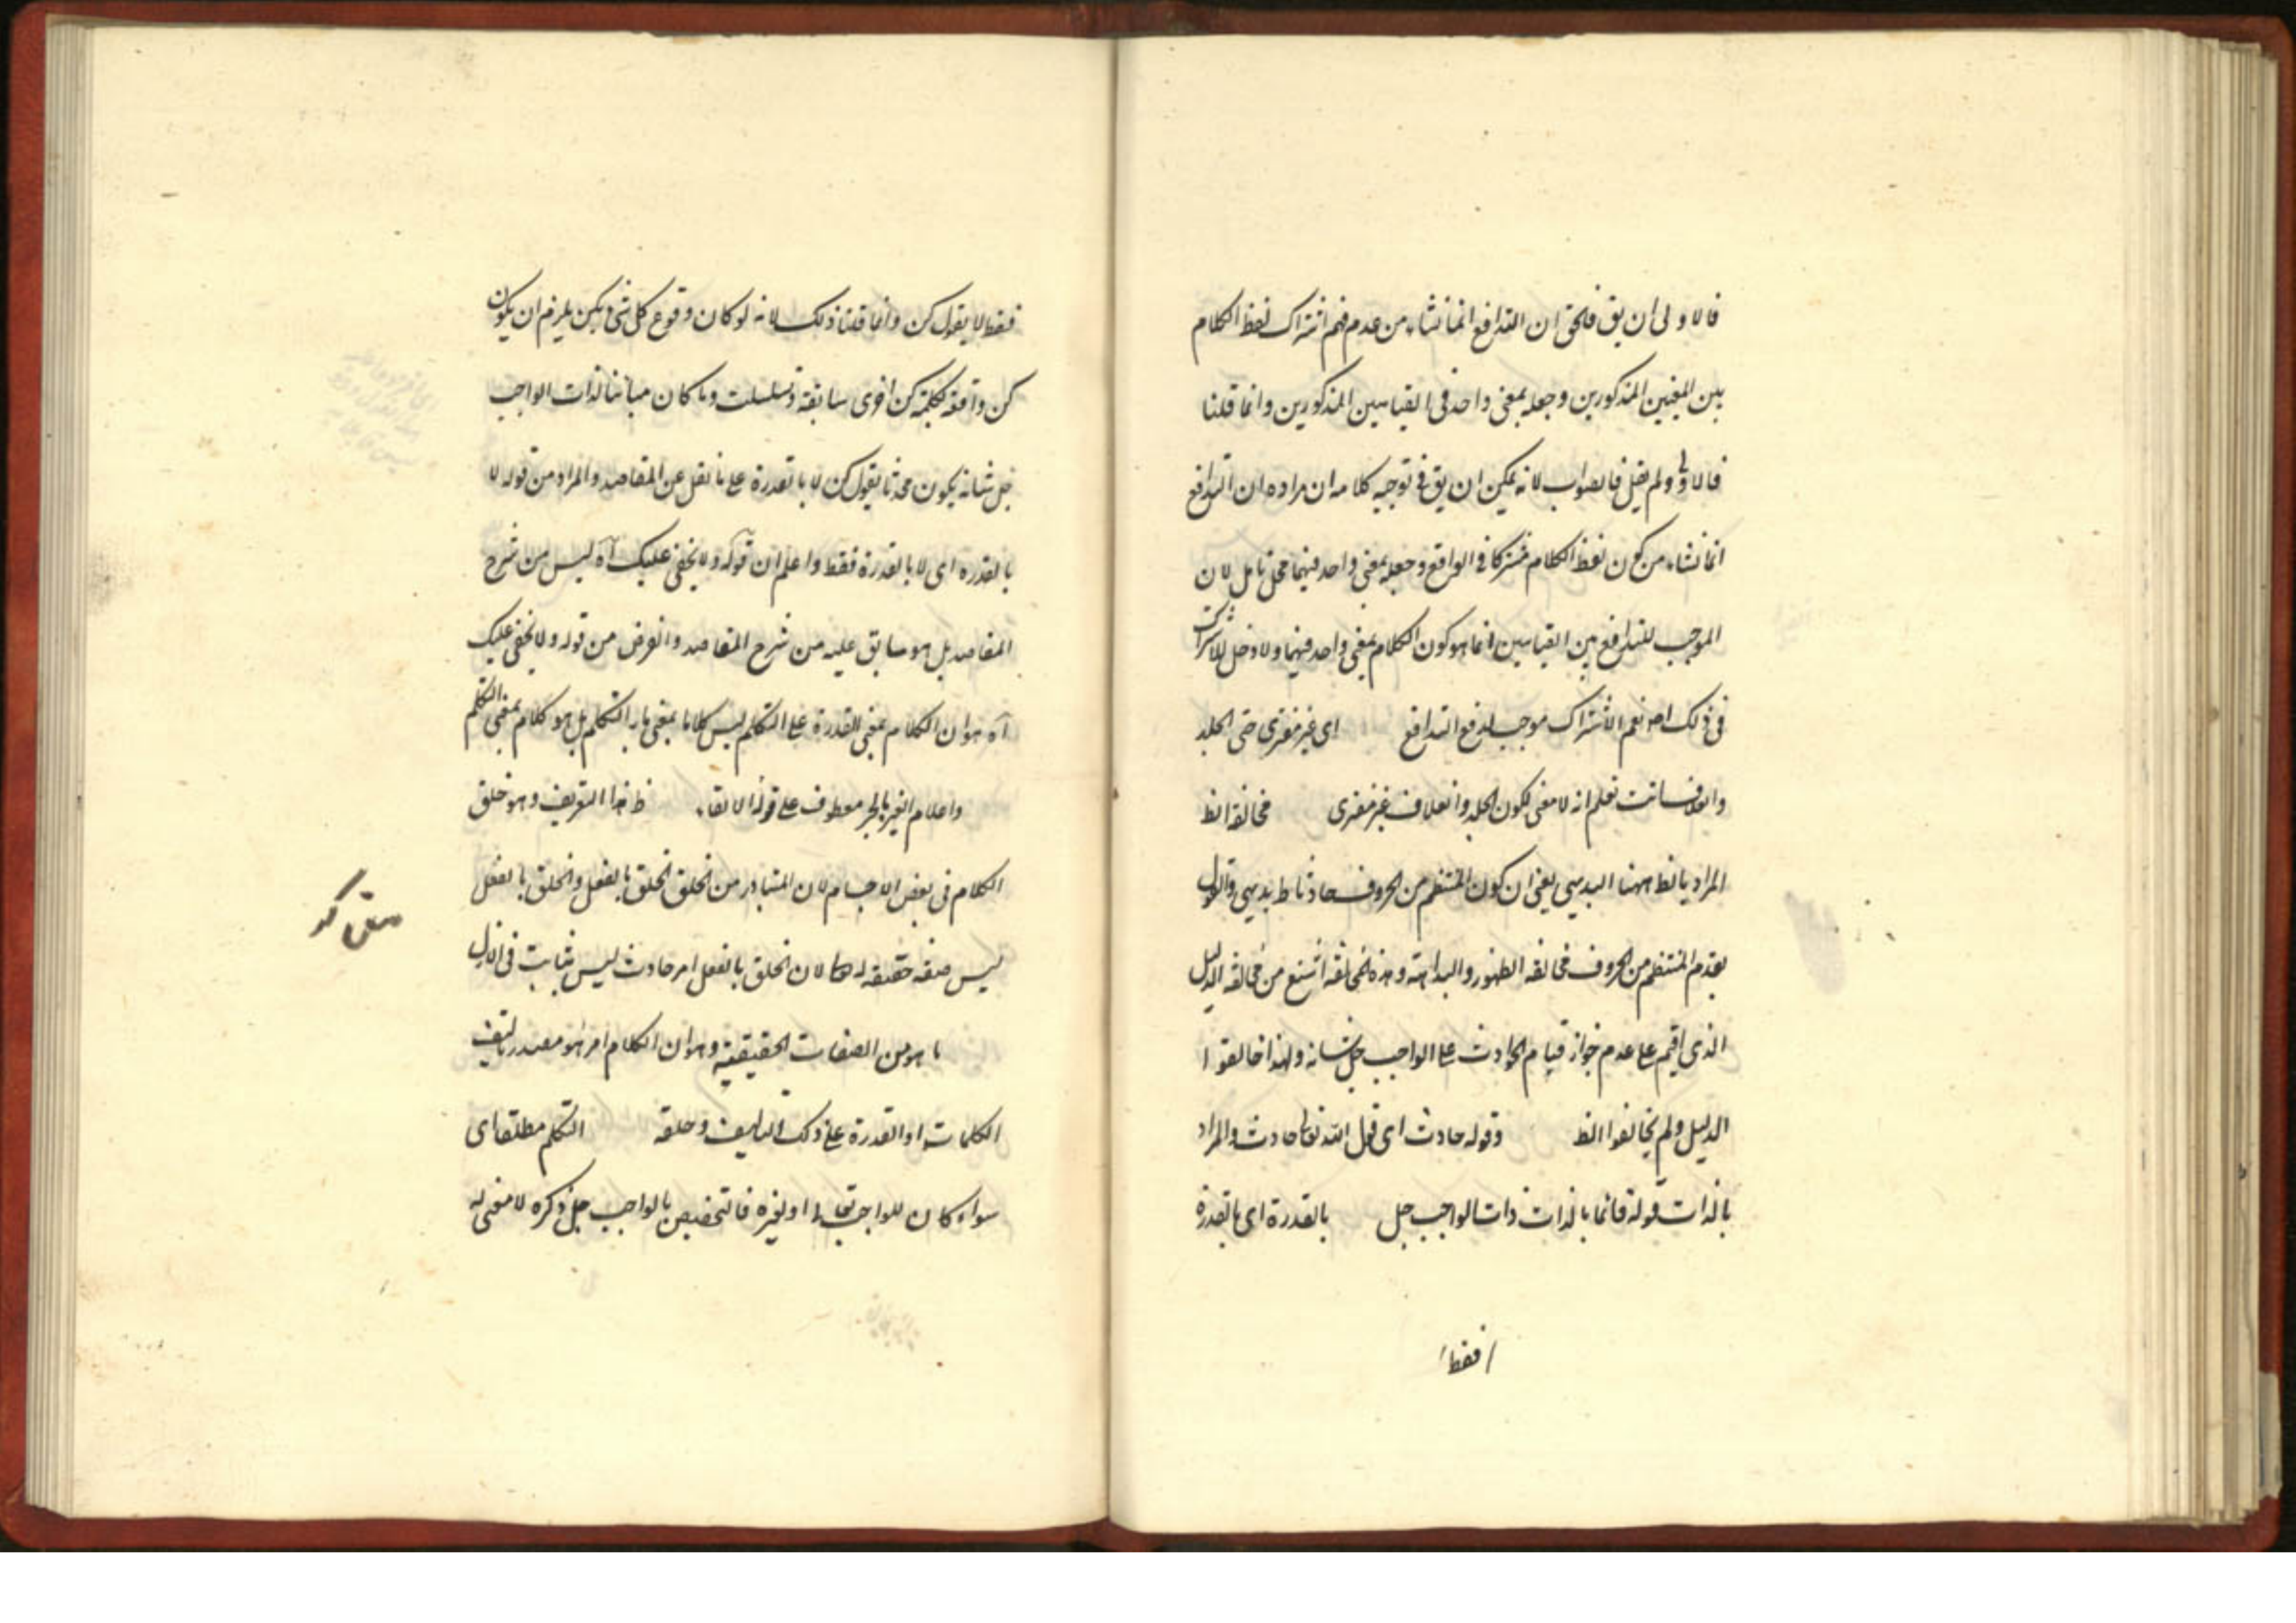 فالاولى ان يق فالحق ان التدافع انما نشاء من عدم فهم اشتراك لفظ الكلام
بين المعنيين المذكورين وجعله بمعنى واحد فى القياسين المذكورين وانما قلنا
فالاولى ولم يقل فالصواب لانه يمكن ان يق فى توجيه كلامه ان مراده ان التدافع
انما نشاء من كون لفظ الكلام مشتركا فى الواقع وجعله بمعنى واحد فيهما محل تامل لان
الموجب للتدافع بين القياسين انما هو كون الكلام بمعنى واحد فيهما ولا دخل للاشتراك
فى ذلك اصلا نعم الاشتراك موجب لدفع التدافع اى غير مفترى حتى الجلد
والغلاف وانت تعلم انه لا معنى لكون الجلد والغلاف غير مفترى مخالفة الظ
المراد بالظ ههنا البديهى يعنى ان كون المنتظم من الحروف حادثا ظ بديهى والقول
بقدم المنتظم من الحروف مخالفة الظهور والبداهة وهذه المخالفة اشنع من مخالفة الدليل
الذى اقيم على عدم جواز قيام الحوادث على الواجب جل شانه ولهذا خالفوا
الدليل ولم يخالفوا الظ وقوله حادث اى قول الله تعالى حادث والمراد
بالذات قوله قائما بالذات ذات الواجب جل بالقدرة اى بالقدرة
فقط
فقط لا بقول كن وانما قلنا ذلك لانه لو كان وقوع كل شىء بكن يلزم ان يكون
كن واقعة بكلمة كن اخرى سابقة وتسلسلت وما كان مباينا لذات الواجب
جل شانه يكون محدثا بقول كن لا بالقدرة على ما نقل عن المقاصد والمراد من قوله لا
بالقدرة اى لا بالقدرة فقط واعلم ان قوله ولا يخفى عليك آه ليس من شرح
المقاصد بل هو سابق عليه من شرح المقاصد والغرض من قوله ولا يخفى عليك
آه هو ان الكلام بمعنى القدرة على التكلم ليس كلاما بمعنى ما به التكلم بل هو كلام بمعنى التكلم
واعلام الغير بالجر معطوف على قوله الالقاء ظ هذا التعريف وهو خلق
الكلام فى بعض الاجسام لان المتبادر من الخلق الخلق بالفعل والخلق بالفعل
ليس صفة حقيقة له تعالى لان الخلق بالفعل امر حادث ليس بثابت فى الازل
ما هو من الصفات الحقيقية وهو ان الكلام امر هو مصدر تاليف
الكلمات او القدرة على ذلك التاليف وخلقه التكلم مطلقا اى
سواء كان للواجب تعالى او لغيره فالتخصيص بالواجب جل ذكره لا معنى له